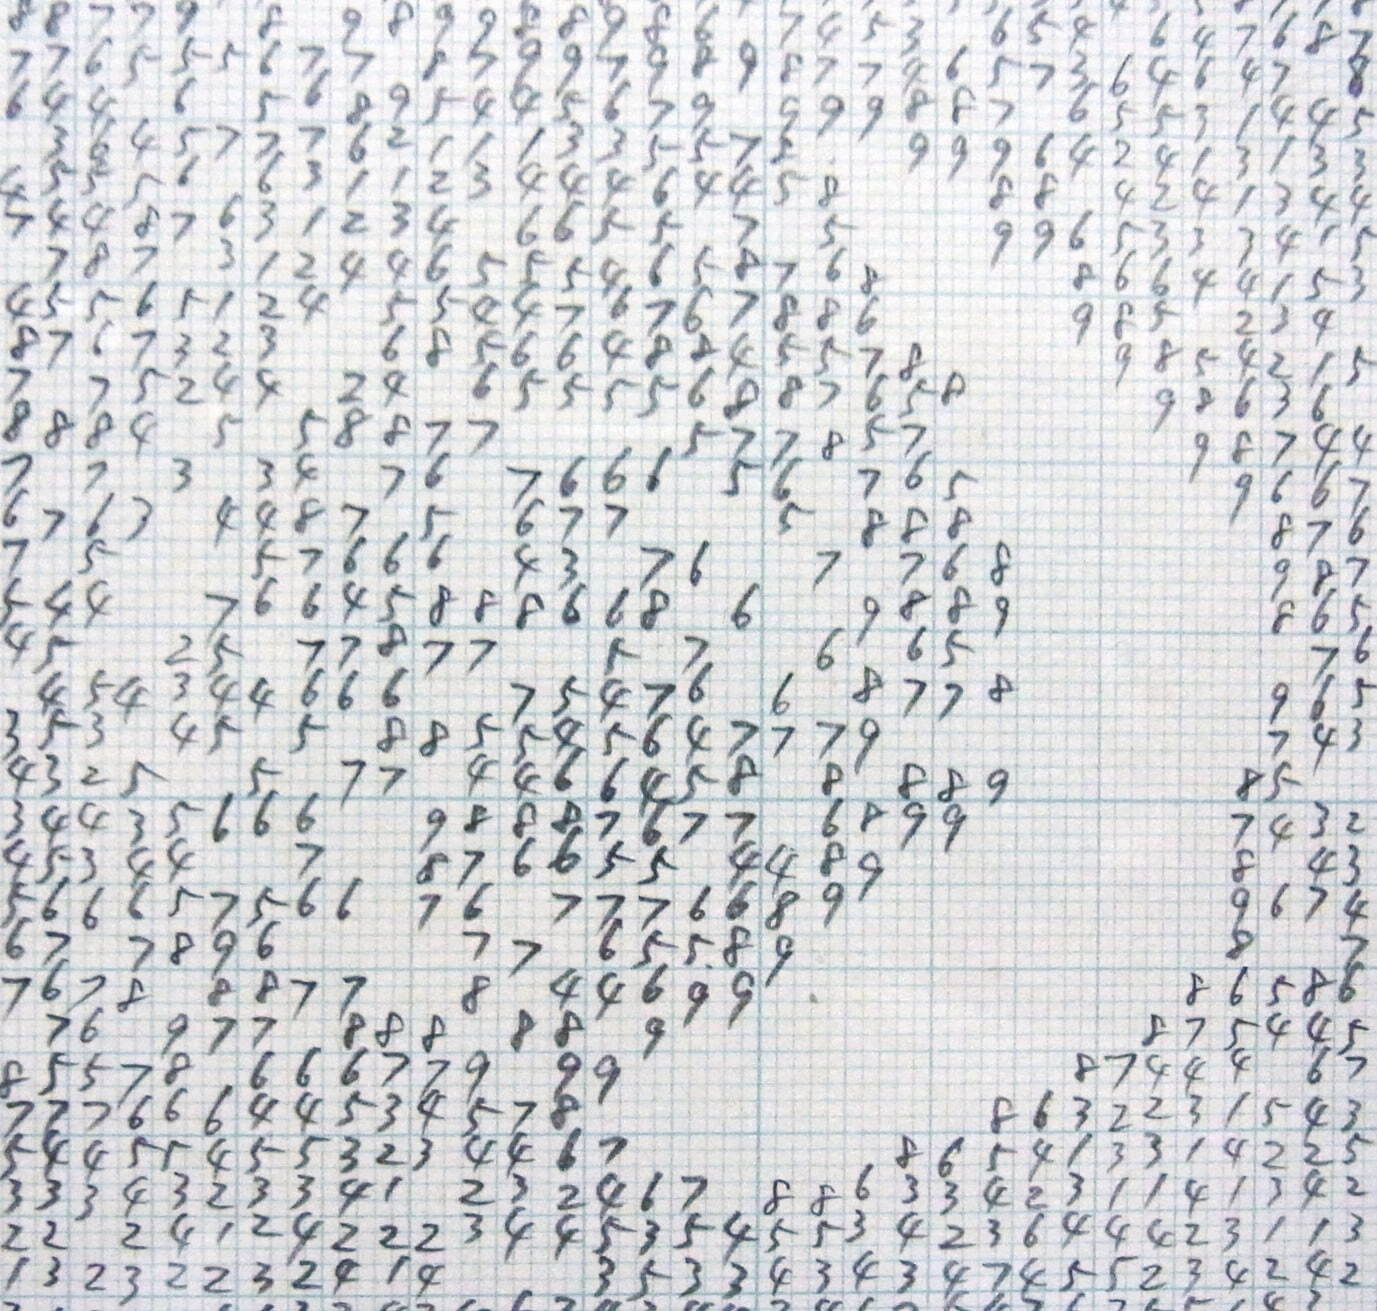 8 8 7 7 9 8 9 8 9 9 8 8 9 8 6 7 4 5 3 6 5 4 6 4 7 6 8 7
7 7 6 5 5 5 6 7 7 8 7 9 9 7 9 8 9 8 7 7 4 6 5 7 3 6 4 6 4 7 8
6 4 4 6 5 6 8 9 5 4 4 5 6 7 9 9 9 9 8 8 7 6 5 5 3 1 4 4 5
3 4 4 5 7 7 7 6 2 1 1 1 3 3 5 5 7 5 9 9 9 6 4 2 4 1 3 1 3 3
4 5 5 5 6 6 3 1 1 2 3 4 4 4 6 4 4 5 8 8 8 4 2 4 1 3 4 4
7 4 4 8 7 6 3 1 2 3 4 6 6 5 5 7 5 9 9 6 5 3 3 3 4 1 5
7 8 7 3 1 2 4 4 6 5 5 5 4 6 5 8 7 6 8 8 6 6 4 4 1 5 3
4 5 5 6 5 1 2 4 5 5 4 4 7 6 7 6 7 8 8 6 9 8 5 2 3 4
8 7 6 7 3 2 3 6 8 5 6 6 4 8 8 4 5 5 7 8 9 8 5 4 2 1 5
7 7 5 2 4 4 2 4 6 5 5 5 5 6 8 8 7 6 5 8 9 8 6 3 6
8 8 8 4 5 5 8 8 7 7 5 7 7 8 5 7 9 8 7 4 4
7 7 3 3 4 7 6 7 6 6 6 5 6 7 6 5 9 6 6 7
6 7 6 3 4 4 8 7 5 6 7 7 5 8 8 8 8 7 6
7 5 5 7 6 6 6 4 3 7 6 7 7 6 8 9 8 7
5 4 4 7 6 6 4 5 8 8 8 6 6 8 6 9 8 8 9 8 6 5
4 5 2 5 7 7 8 7 7 5 7 6 6 5 7 6
4 5 4 3 4 4 6 6 6 7 5 4 7 6 6 8 7 7 8 9 6 5
3 5 3 4 5 5 8 8 5 5 4 5 6 4 7 7 7 9 7 4 3
4 3 2 5 5 7 7 4 4 6 6 4 5 8 8 8 8 9 8 5
3 4 4 3 5 6 6 6 9 8 8 8 7 6 7 7 6 8 9 9 7 4 3 2
4 5 3 4 4 7 8 7 6 6 5 5 4 4 8 9 8 4 3
5 6 6 6 5 7 5 6 6 7 6 7 7 7 6 6 8 9 9 6 7 4
6 7 7 8 9 6 7 7 6 5 5 8 9 8 7
7 6 7 8 8 8 7 7 8 4 4 6 9 9 8 6 5 8 6
7 6 9 7 7 8 8 8 8 8 9 8 7 5 4 4 5
8 5 5 7 8 6 6 6 7 7 9 9 9 8 7 4 4 4 6 7
7 7 7 6 6 6 4 4 5 3 4 5 7 8 8 6 3 2 2 3 1 5 4 3
5 4 4 5 5 4 5 5 3 2 3 4 4 6 7 8 6 5 4 1 3 3 1 4 2 2 5
3 3 3 4 3 2 3 3 4 1 2 3 2 4 6 7 8 8 6 3 3 4 2 3 1 1 4 1 3 4 2
2 2 2 4 1 2 4 2 2 2 3 4 4 5 3 5 4 5 5 3 4 2 3 6 4 4 4 2 3 1 1 3
1 3 2 3 2 2 3 2 4 1 4 3 5 3 3 4 3 4 3 4 7 4 5 5 2 3 4 2 4 2